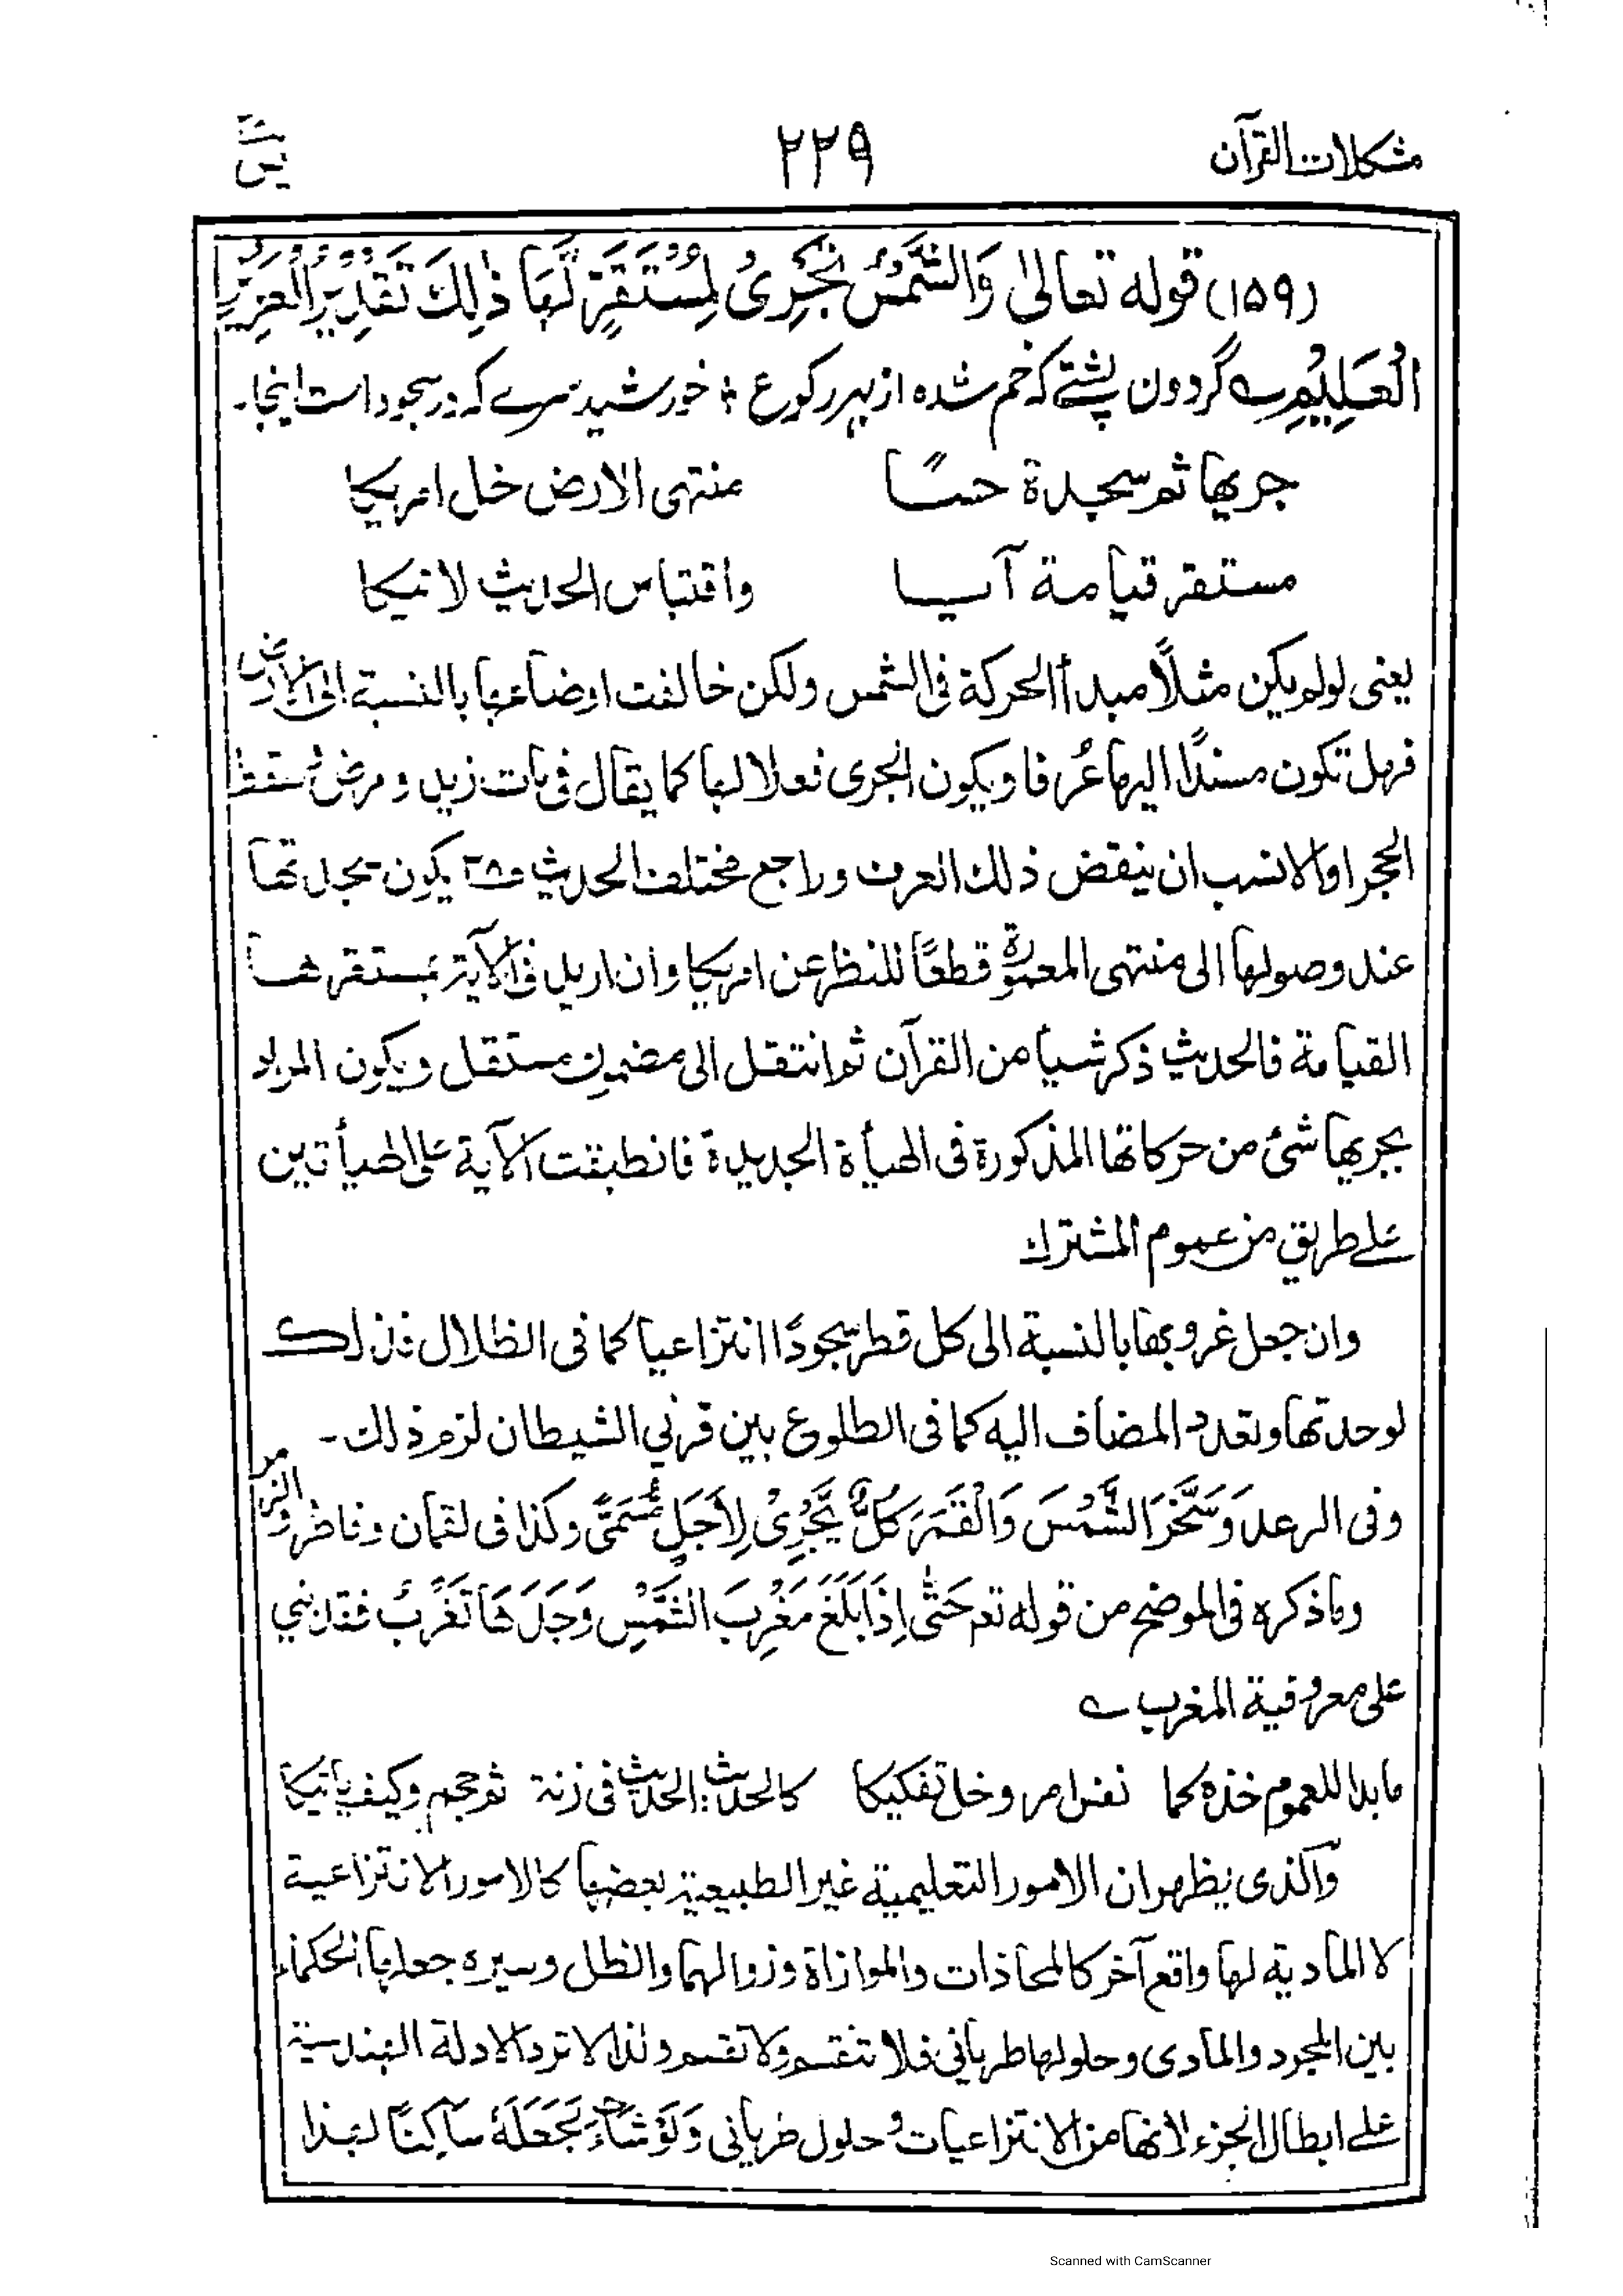 مشكلات القرآن
۲۲۹
يٰسٓ
(۱۵۹) قوله تعالىٰ وَالشَّمْسُ تَجْرِىْ لِمُسْتَقَرٍّ لَّهَا ذٰلِكَ تَقْدِيْرُ الْعَزِيْزِ
الْعَلِيْمِ ے گردون پشتے کہ خم شدہ از بہر رکوع ؛ خورشید سرے کہ در سجود است اینجا۔
جريها ثم سجدة حسًا منتهى الارض خل امريكا
مستقر قيامة آسيا واقتباس الحديث لاتيكا
يعنى لو لم يكن مثلًا مبدأ الحركة فى الشمس ولكن خالفت اوضاعها بالنسبة الى الارض
فهل تكون مسندًا اليها عُرفا ويكون الجرى فعلا لها كما يقال فى مات زيد ومرض وسقط
الحجر او الانسب ان ينقض ذلك العرف وراجع مختلف الحديث يكون سجدتها
عند وصولها الى منتهى المعمورة قطعًا للنظر عن امريكا وان اريد فى الآية بمستقرها
القيامة فالحديث ذكر شيأ من القرآن ثم انتقل الى مضمون مستقل ويكون المراد
بجريها شئ من حركاتها المذكورة فى الهيأة الجديدة فانطبقت الآية على الهيأتين
على طريق من عموم المشترك
وان جعل غروبها بالنسبة الى كل قطر سجودًا انتزاعيا كما فى الظلال فذلك
لوحدتها وتعدد المضاف اليه كما فى الطلوع بين قرني الشيطان لزم ذلك۔
وفى الرعد وَسَخَّرَ الشَّمْسَ وَالْقَمَرَ كُلٌّ يَّجْرِىْ لِاَجَلٍ مُّسَمًّى وكذا فى لقمان وفاطر والزمر
وما ذكره فى الموضح من قوله تعـ حَتّٰى اِذَا بَلَغَ مَغْرِبَ الشَّمْسِ وَجَدَهَا تَغْرُبُ فقد بني
على معروفية المغرب ے
ما بدا للعموم خذه كما نفس امر وخل تفكيكا كالحدث الحديث فى زنة ثم حجم وكيف ياتيكا
والذى يظهر ان الامور التعليمية غير الطبيعية بعضها كالامور الانتزاعية
لا المادية لها واقع آخر كالمحاذات والموازاة وزوالهما والظل وسيره جعلها الحكماء
بين المجرد والمادى وحلولها طرياني فلا تنقسم ولا تقسم ولذا لا ترد الادلة الهندسية
على ابطال الجزء لانها من الانتزاعيات وحلول طرياني وَلَوْ شَآءَ لَجَعَلَهٗ سَاكِنًا لهذا
Scanned with CamScanner